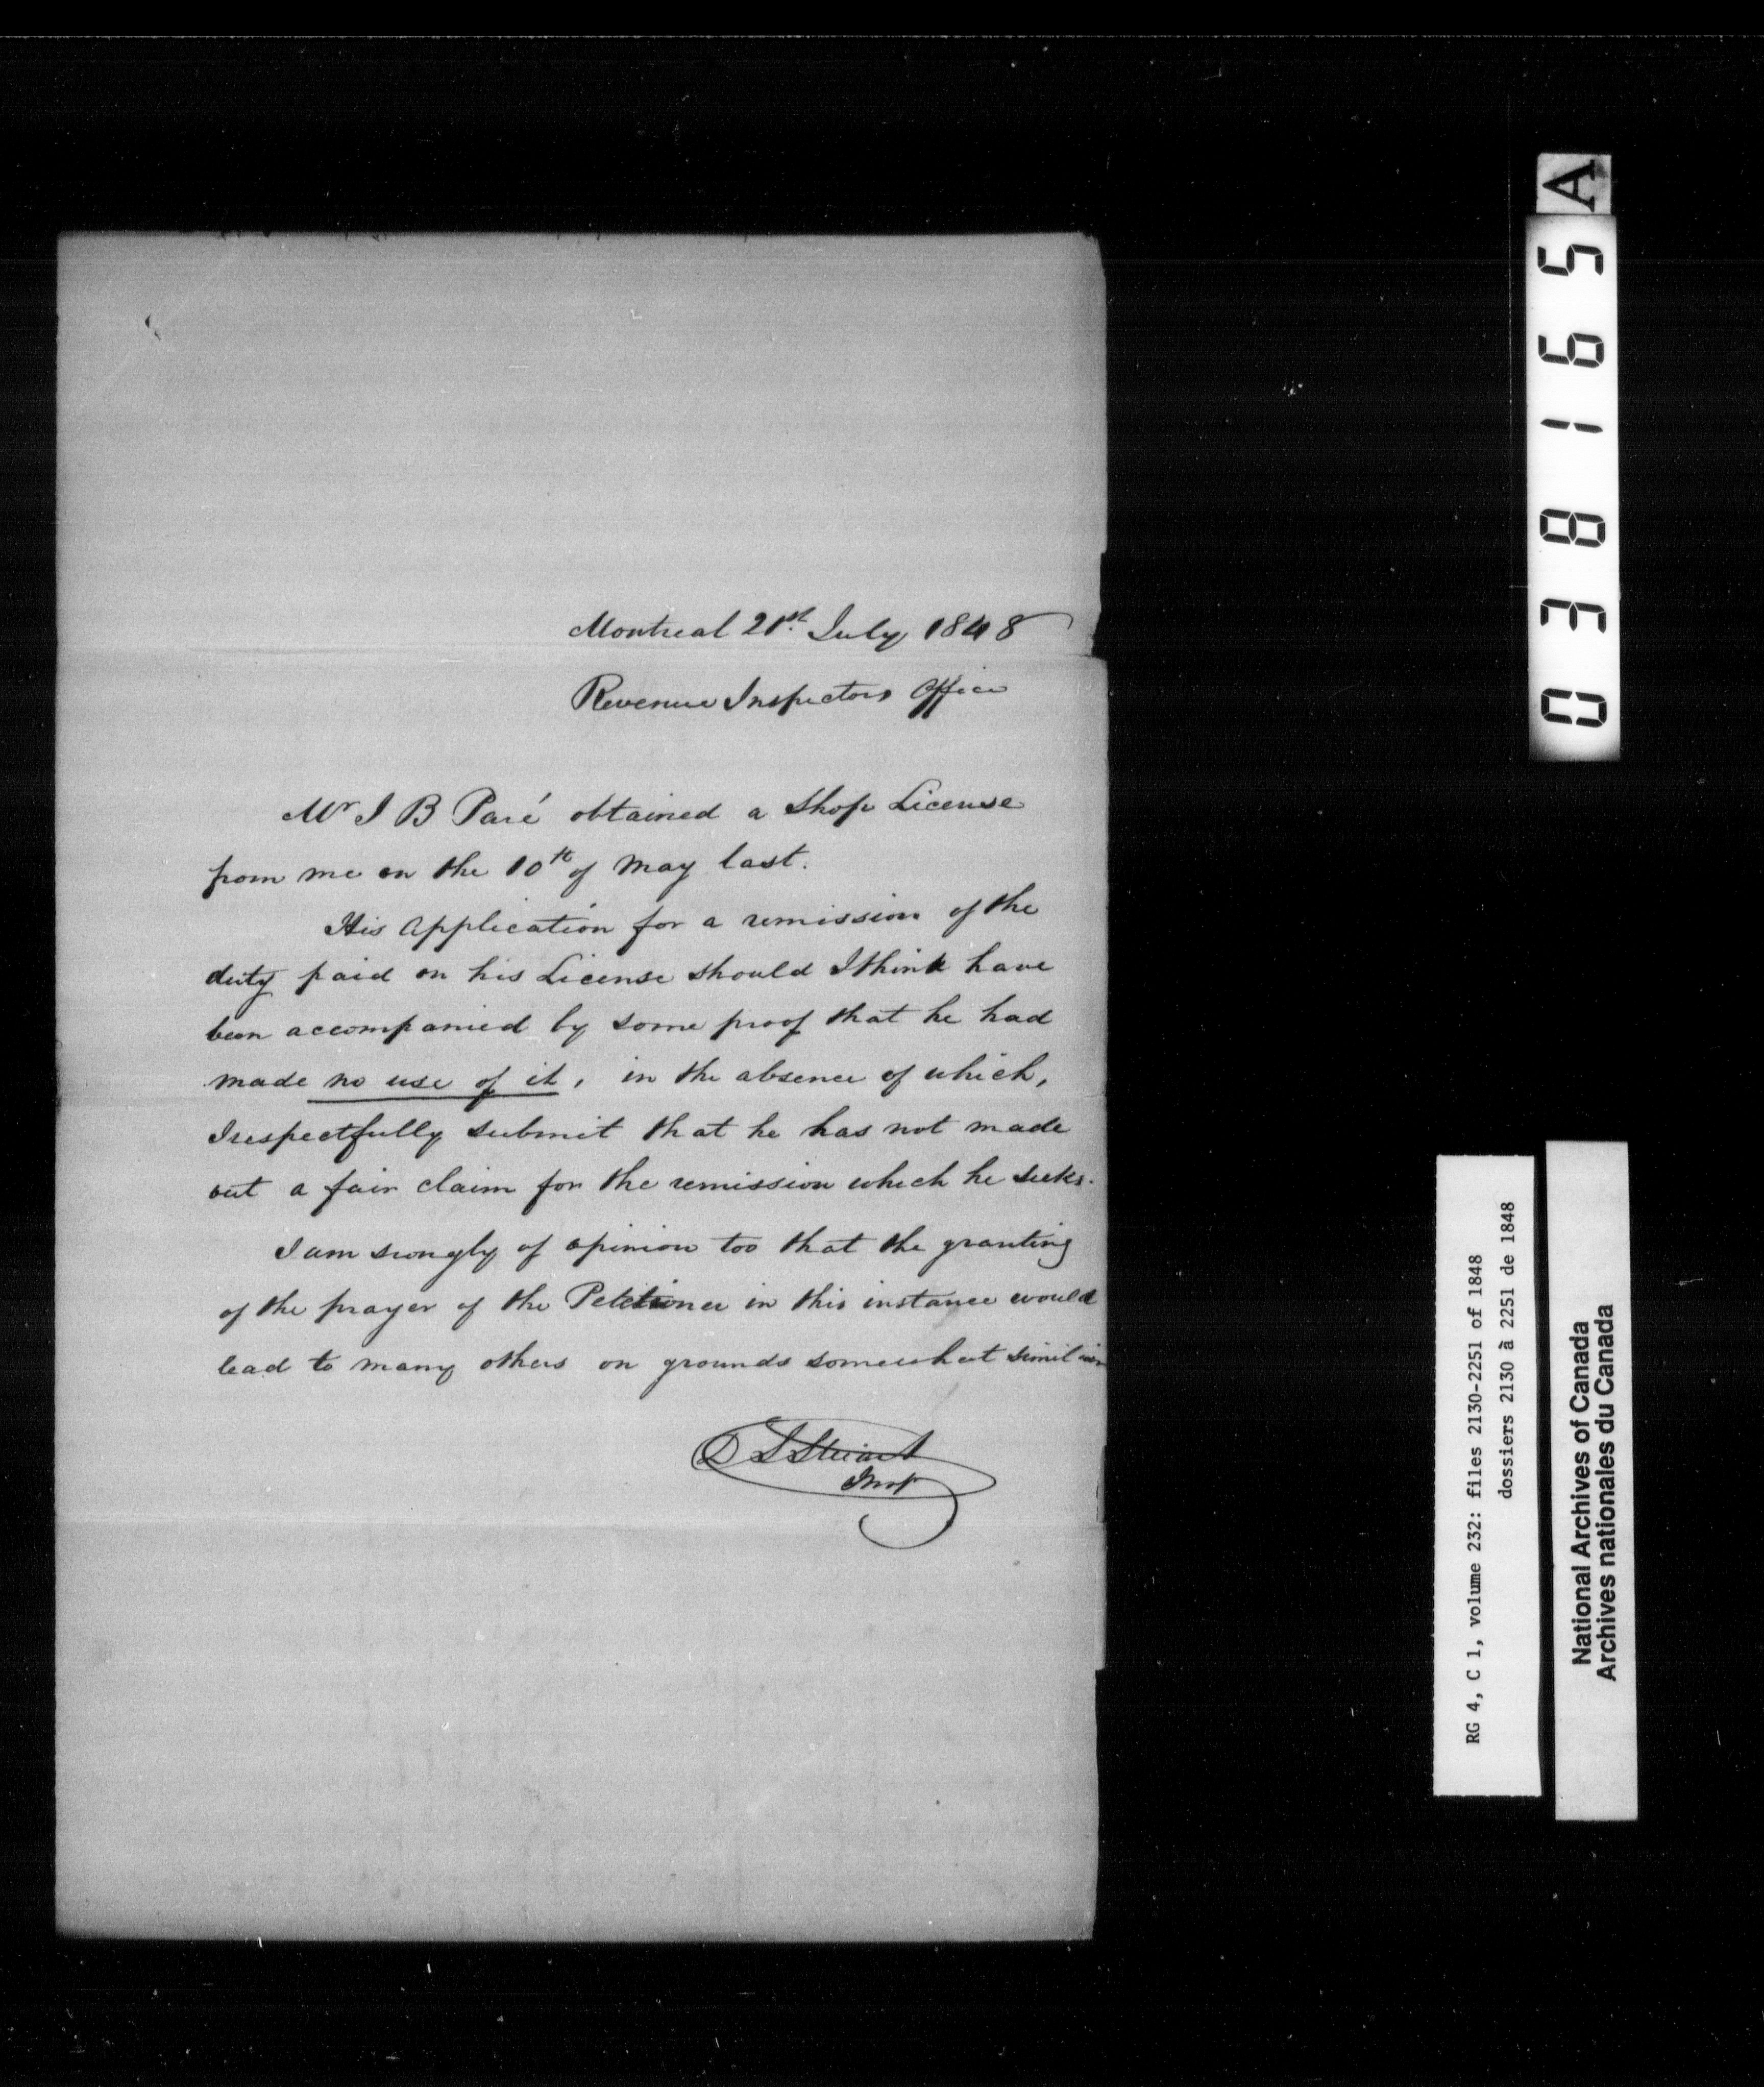 Montreal 21st July 1848
Revenue Inspectors Office
Mr J B Paré obtained a Shop License
from me on the 10th of May last.
His Application for a remission of the
duty paid on his License should I think have
been accompanied by some proof that he had
made no use of it, in the absence of which,
I respectfully submit that he has not made
out a fair claim for the remission which he seeks.
I am srongly of opinion too that the granting
of the prayer of the Petitioner in this instance would
lead to many others on grounds somewhat similar
D S Stuart
Insp
038165 A
RG 4, C 1, volume 232: files 2130-2251 of 1848
dossiers 2130 à 2251 de 1848
National Archives of Canada
Archives nationales du Canada